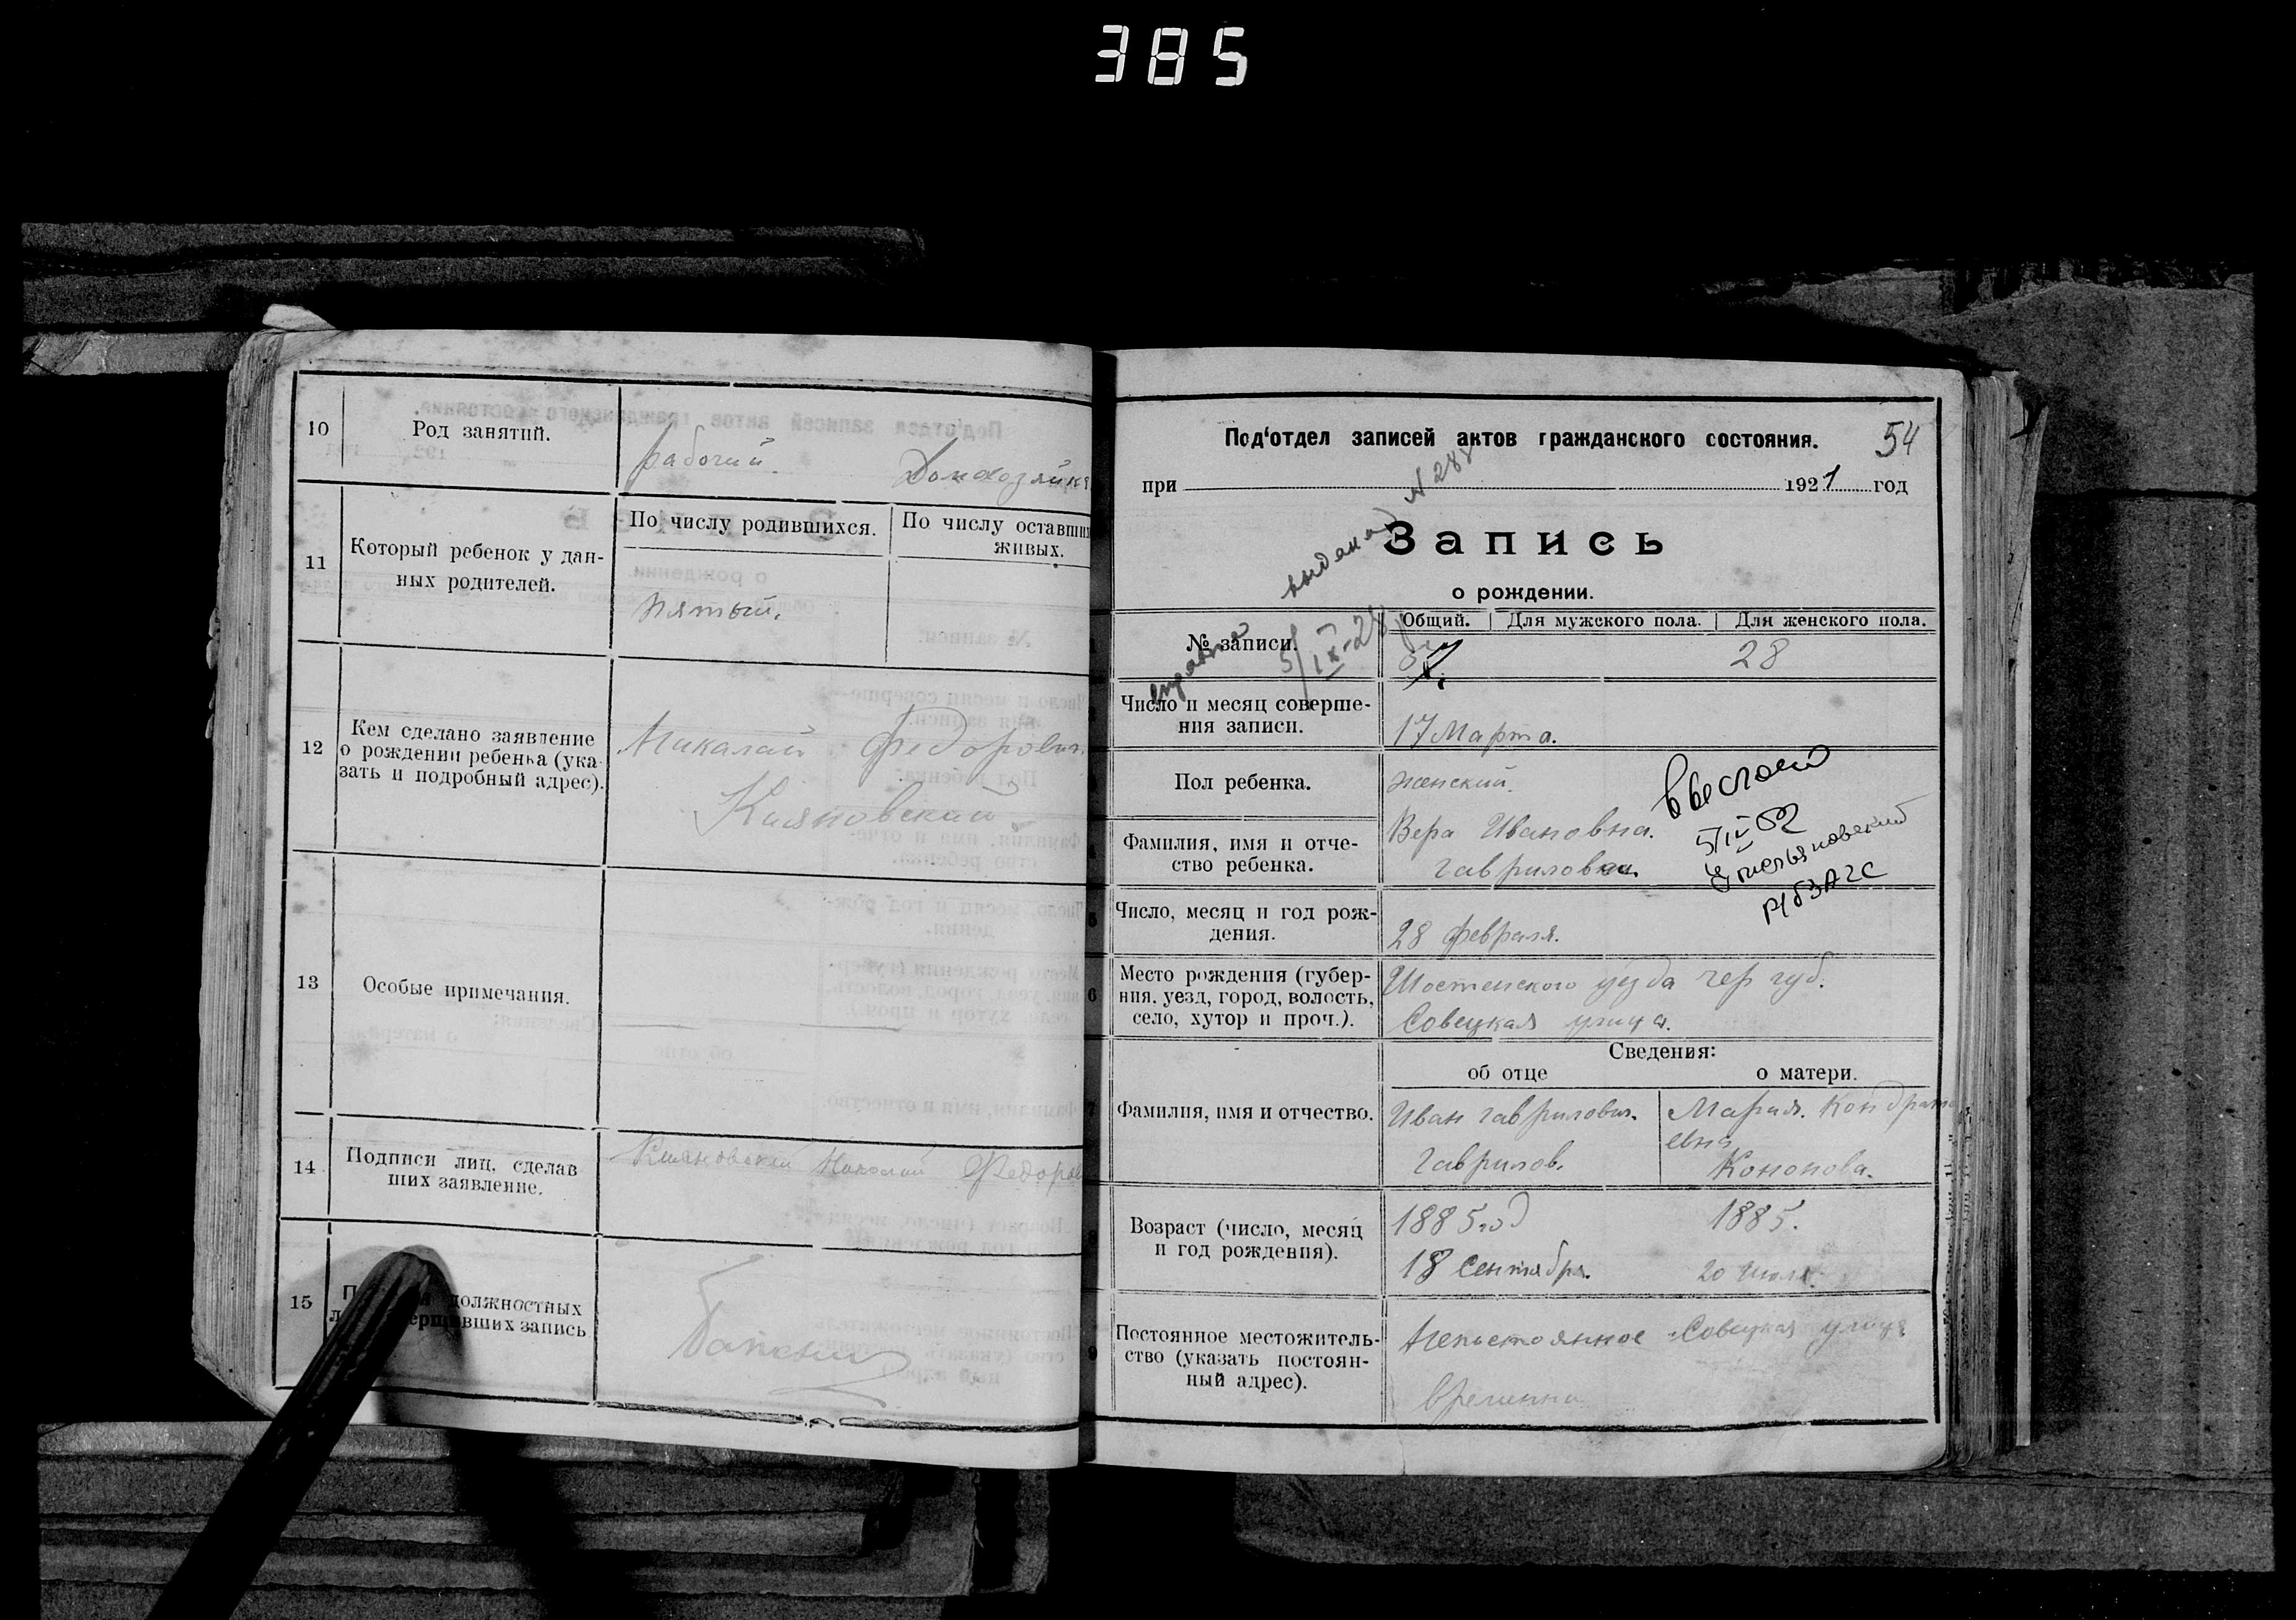 385
10
Род занятий.
рабочий.
Домохозяйка
11
Который ребенок у дан-
ных родителей.
По числу родившихся.
По числу оставших
живых.
пятый.
12
Кем сделано заявление
о рождении ребенка (ука-
зать и подробный адрес).
Николай Федорович
Кияновский
13
Особые примечания.
14
Подписи лиц, сделав
ших заявление.
Кияновский Николай Федоров
15
должностных
вших запись
54
Под'отдел записей актов гражданского состояния.
при 1921 год
Запись
о рождении.
справка выдана N 288
5/IX-28
№ записи.
Общий. Для мужского пола. Для женского пола.
28
Число и месяц соверше-
ния записи.
17 Марта.
Пол ребенка.
женский.
Фамилия, имя и отче-
ство ребенка.
Вера Ивановна.
Гаврилова.
5
Число, месяц и год рож-
дения.
28 февраля.
6
Место рождения (губер-
ния, уезд, город, волость,
село, хутор и проч.).
Шостенского уезда чер губ.
Совецкая улица.
Сведения:
об отце
о матери.
7
Фамилия, имя и отчество.
Иван Гаврилович.
Гаврилов.
Мария. Кондрать
евна
Кононова.
Возраст (число, месяц
и год рождения).
1885 год
18 Сентября.
1885.
20 Июля.
9
Постоянное местожитель-
ство (указать постоян-
ный адрес).
Совецкая улица